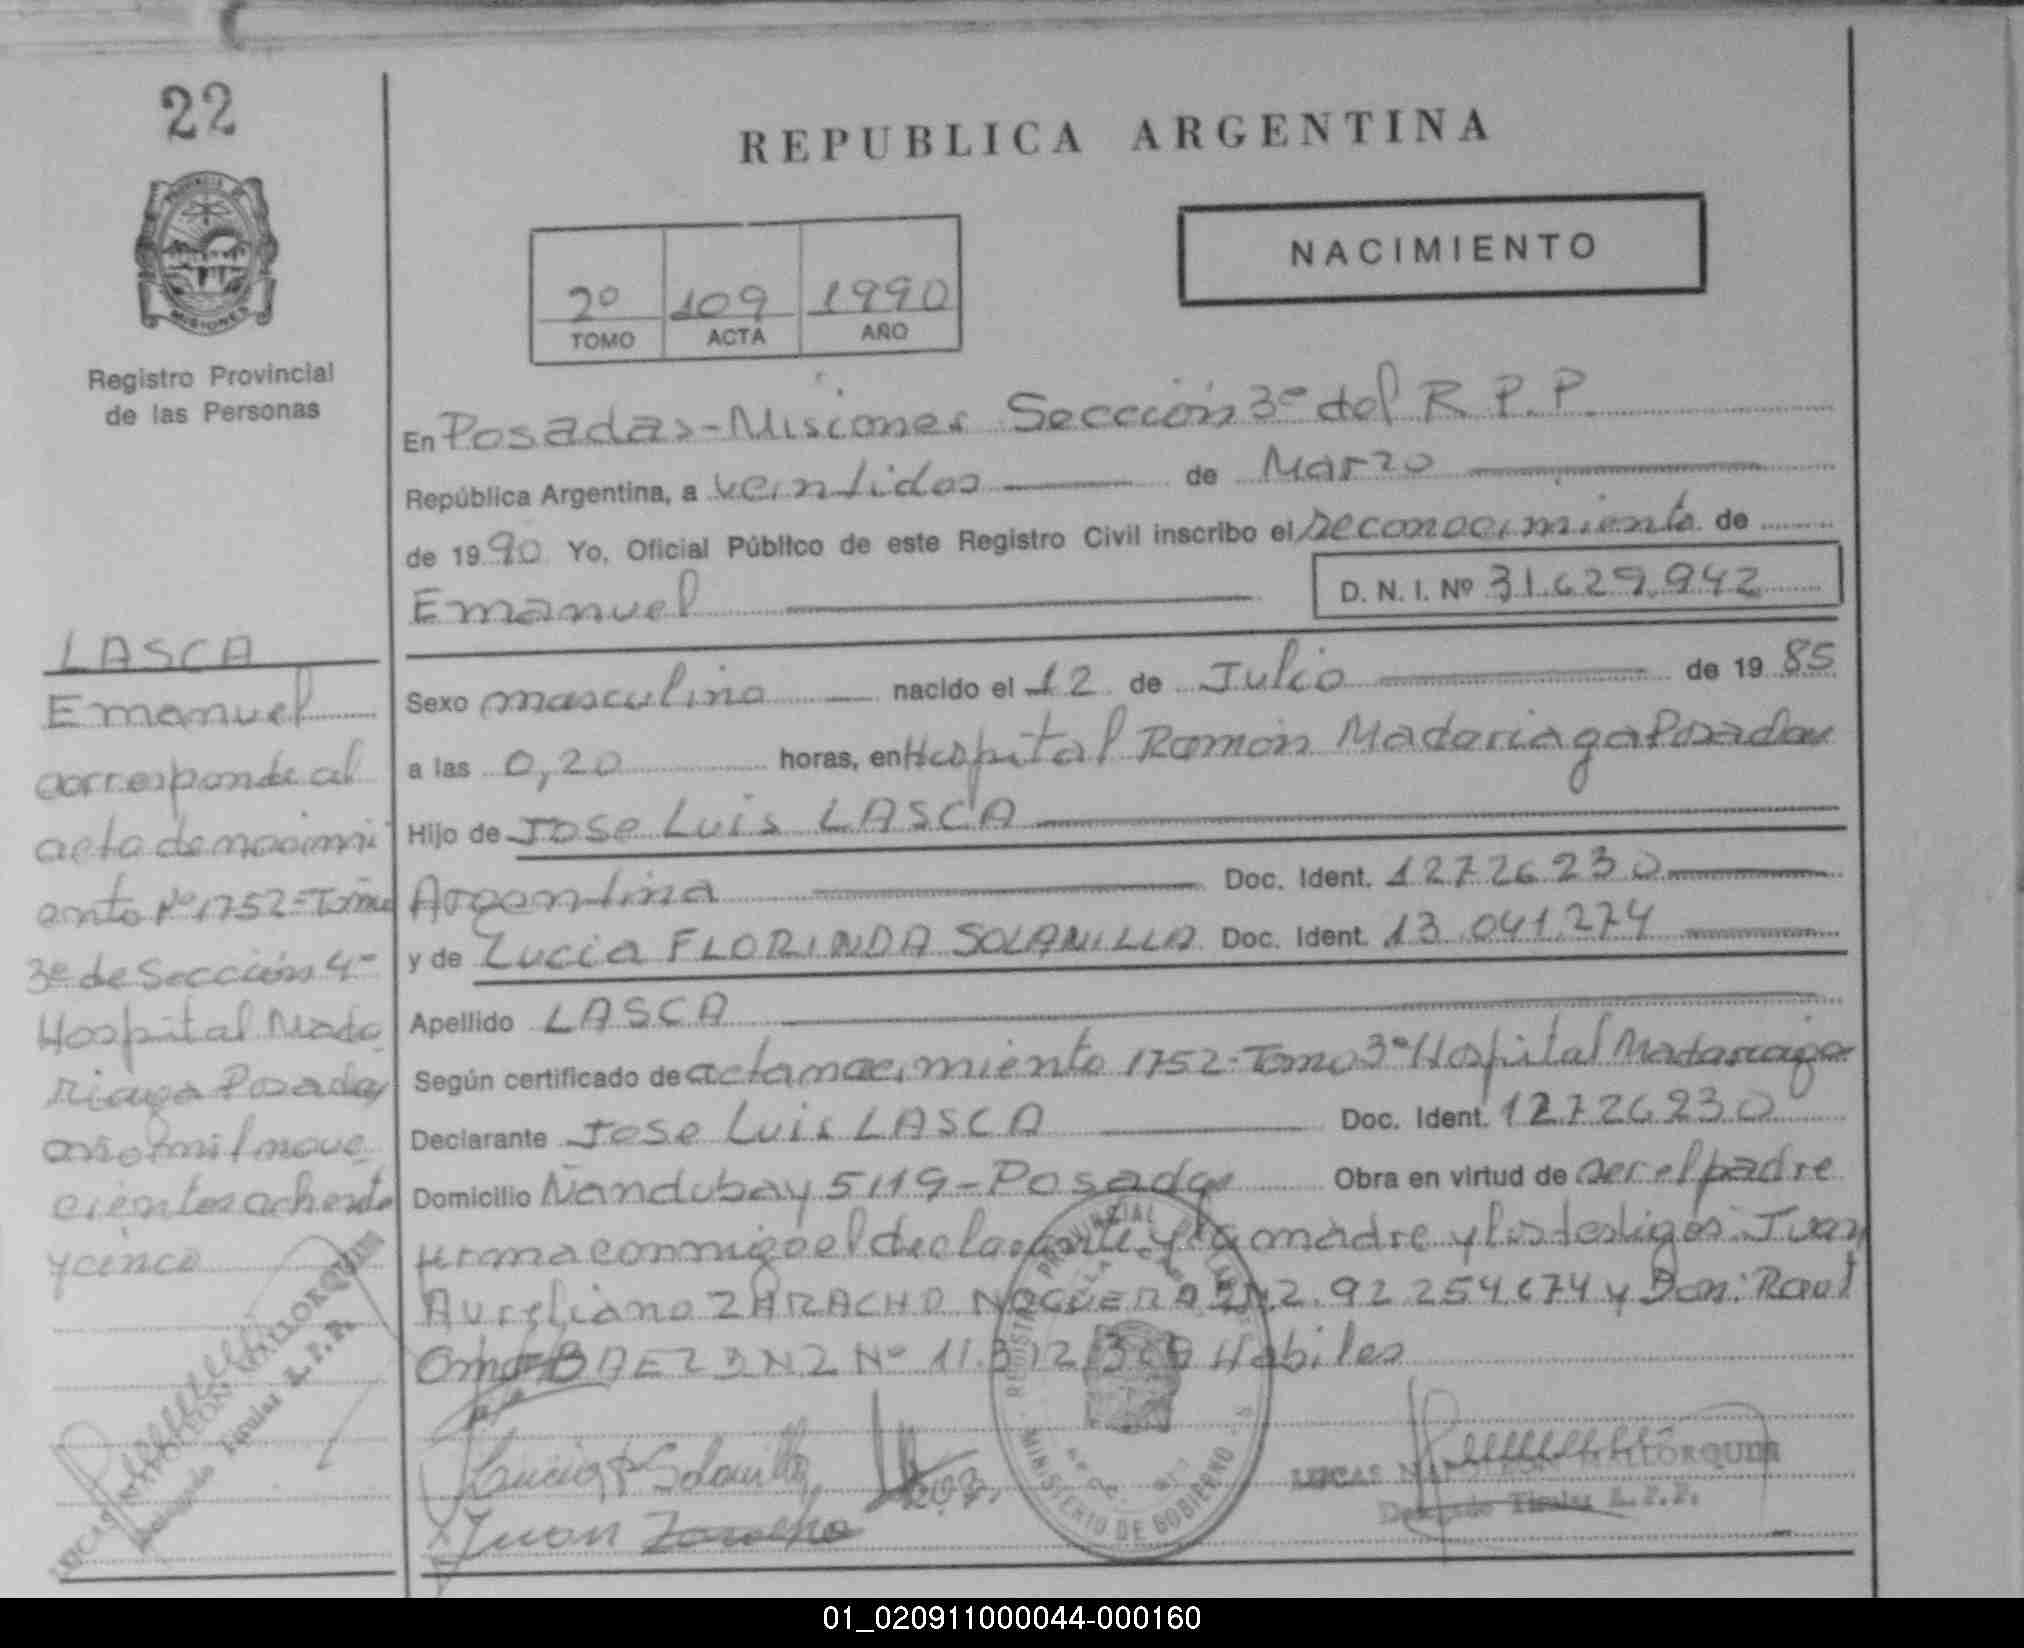 22
REPUBLICA ARGENTINA
NACIMIENTO
2º 109 1990
TOMO ACTA AÑO
MISIONES
Registro Provincial
de las Personas
En Posadas-Misiones Sección 3º del R.P.P.
República Argentina, a veintidos de Marzo
de 1990 Yo, Oficial Público de este Registro Civil inscribo el reconocimiento de
Emanuel D.N.I. Nº 31.629.942
Sexo masculino nacido el 12 de Julio de 1985
a las 0,20 horas, en Hospital Ramón Madariaga Posadas
Hijo de Jose Luis LASCA
Argentina Doc. Ident. 12726230
y de Lucia FLORINDA SOLANILLA Doc. Ident. 13.041.274
Apellido LASCA
Según certificado de acta nacimiento 1752-Tomo 3º Hospital Madariaga
Declarante Jose Luis LASCA Doc. Ident. 12726230
Domicilio Ñandubay 5119-Posadas Obra en virtud de ser el padre
firma conmigo el declarante y la madre y los testigos: Juan
Aureliano ZARACHO NOGUERA DNI. 92.254.674 y Don: Raul
BAEZ DNI Nº Habiles
LASCA
Emanuel
corresponde al
acta de nacimi
ento Nº 1752-Tomo
3º de Sección 4º
Hospital Mada
riaga Posadas
año mil nove
cientos ochenta
y cinco
LUCAS NAPOLEON MALLORQUIN
Delegado Titular R.P.P.
Lucia F Solanilla
Juan Zaracho
REGISTRO PROVINCIAL DE LAS
MINISTERIO DE GOBIERNO
LUCAS NAPOLEON MALLORQUIN
Delegado Titular R.P.P.
01_020911000044-000160